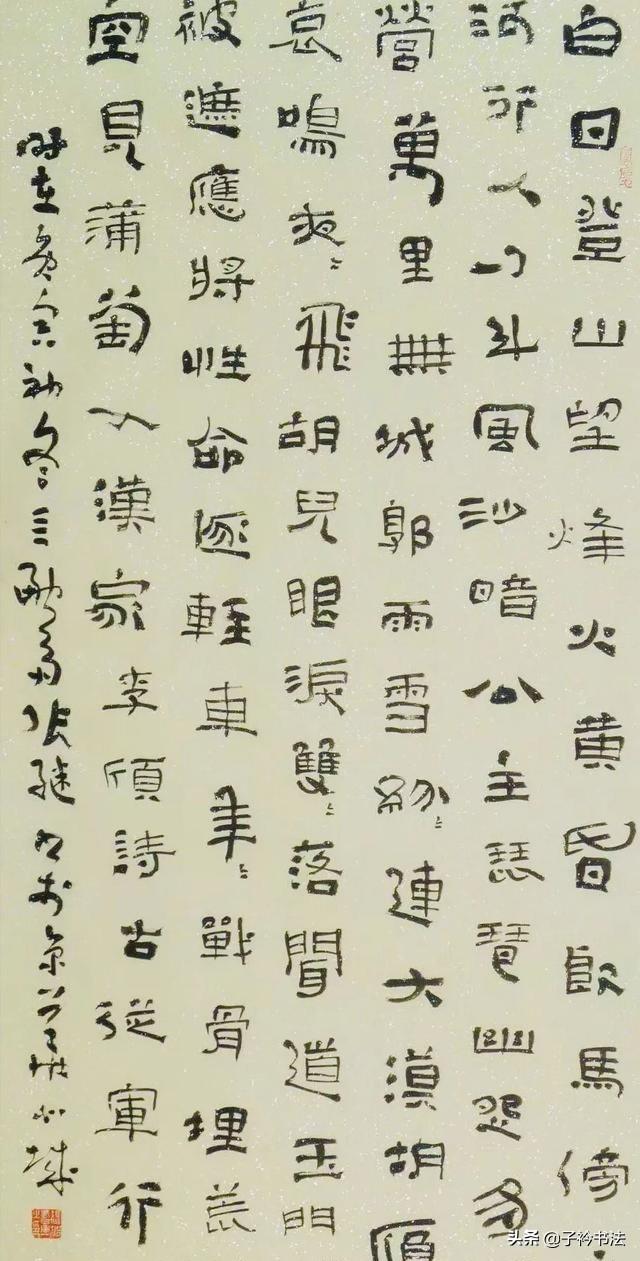 白日登山望烽火黄昏飲馬傍
河行人刁斗風沙暗公主琵琶幽怨多
營萬里無城郭雨雪紛〻連大漠胡雁
哀鳴夜〻飛胡兒眼淚雙〻落聞道玉門
被遮應將性命逐輕車年〻戰骨埋荒
空見蒲萄入漢家李頎詩古從軍行
時在初冬三張继於京城
头条 @子衿书法